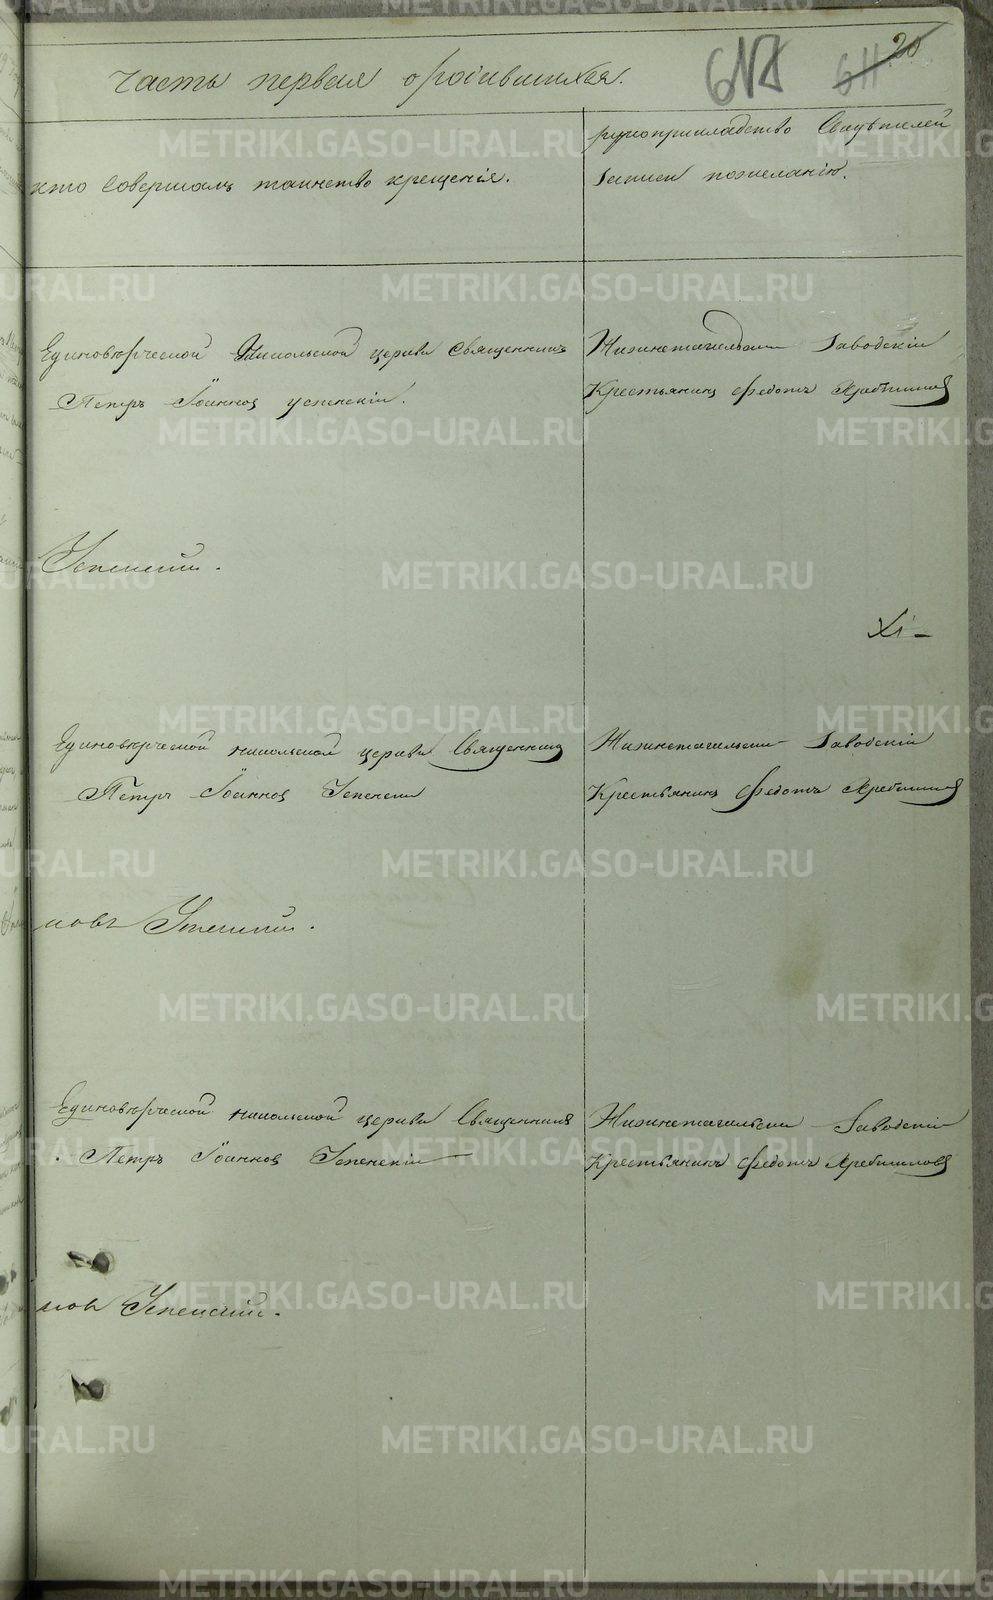 Часть первая о родившихся.
20
611
кто совершалъ таинство крещенія.
рукоприкладство свидѣтелей
записи по желанію.
Единовѣрческой Никольской церкви Священникъ
Петръ Іоанновъ Успенскій.
Нижнетагильскій Заводскій
Крестьянинъ Федотъ
Успенскій.
Единовѣрческой Никольской церкви Священникъ
Петръ Іоанновъ Успенскій
Нижнетагильскій Заводскій
Крестьянинъ Федотъ
новъ Успенскій.
Единовѣрческой Никольской церкви Священникъ
Петръ Іоанновъ Успенскій
Нижнетагильскій Заводскій
Крестьянинъ Федотъ
новъ Успенскій.
METRIKI.GASO-URAL.RU